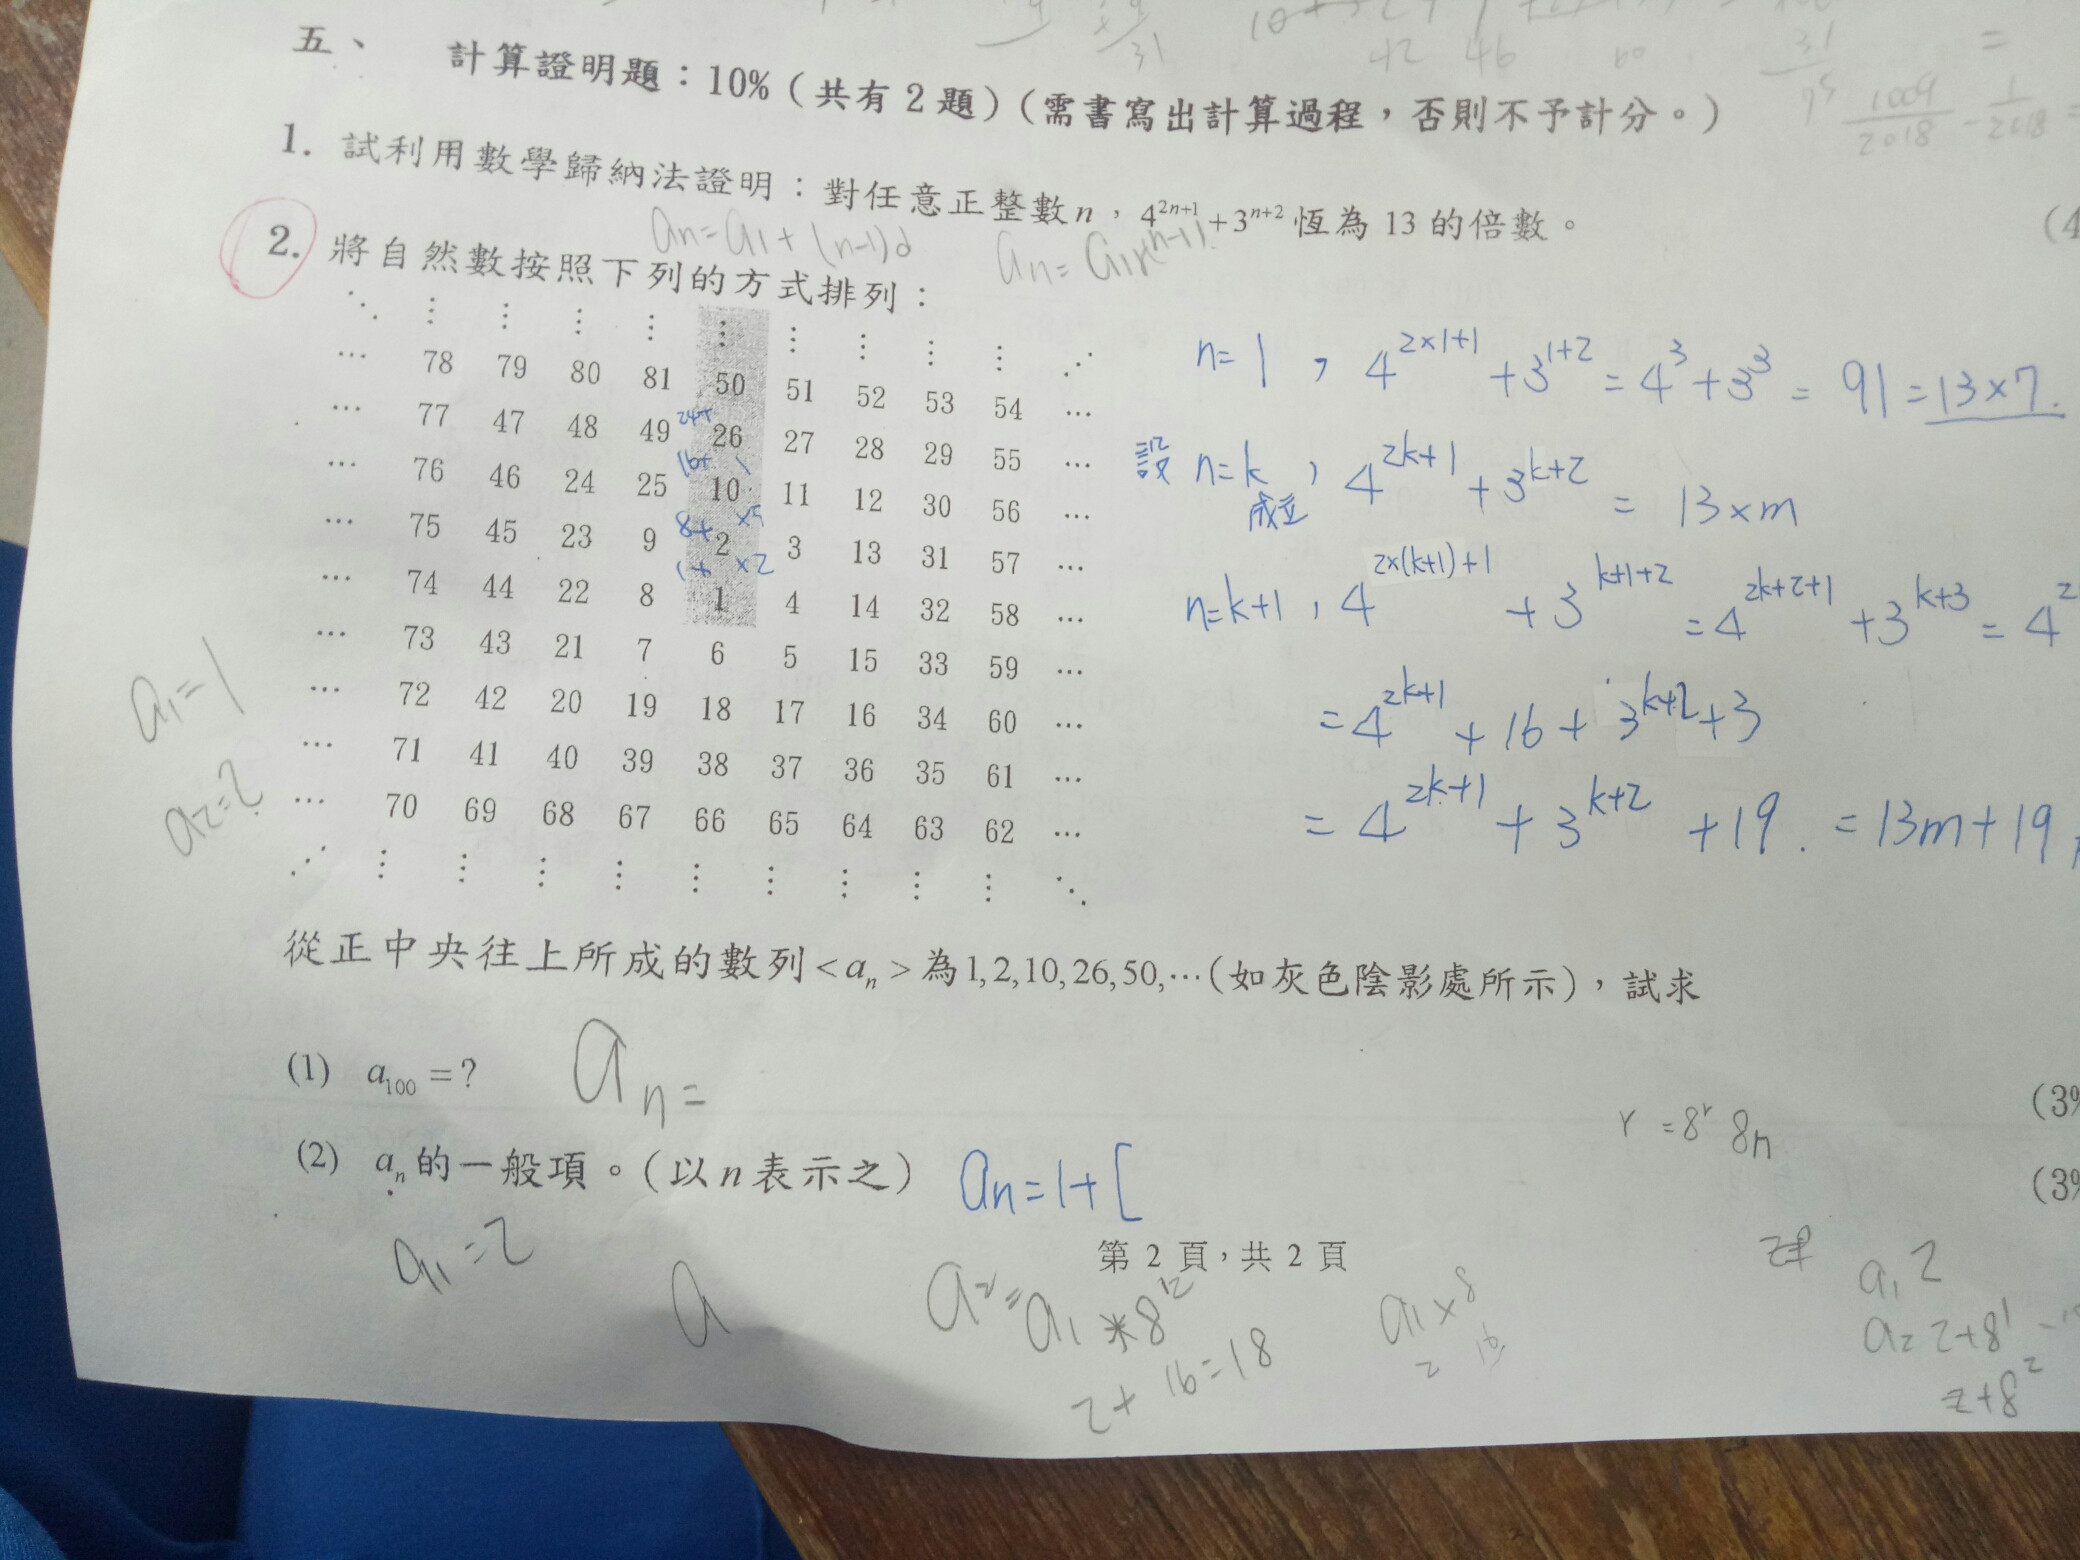 五、 計算證明題：10%（共有 2 題）（需書寫出計算過程，否則不予計分。）
1. 試利用數學歸納法證明：對任意正整數 n，4^{2n+1}+3^{n+2} 恆為 13 的倍數。
(4
an=a1+(n-1)d
2. 將自然數按照下列的方式排列：
⋱ ⋮ ⋮ ⋮ ⋮ ⋮ ⋮ ⋮ ⋮ ⋮ ⋰
… 78 79 80 81 50 51 52 53 54 …
… 77 47 48 49 26 27 28 29 55 …
… 76 46 24 25 10 11 12 30 56 …
… 75 45 23 9 2 3 13 31 57 …
… 74 44 22 8 1 4 14 32 58 …
… 73 43 21 7 6 5 15 33 59 …
… 72 42 20 19 18 17 16 34 60 …
… 71 41 40 39 38 37 36 35 61 …
… 70 69 68 67 66 65 64 63 62 …
⋰ ⋮ ⋮ ⋮ ⋮ ⋮ ⋮ ⋮ ⋮ ⋮ ⋱
n=1, 4^{2×1+1}+3^{1+2}=4^3+3^3=91=13×7.
設 n=k 成立, 4^{2k+1}+3^{k+2}=13×m
n=k+1, 4^{2×(k+1)+1}+3^{k+1+2}=4^{2k+2+1}+3^{k+3}=4
=4^{2k+1}+16+3^{k+2}+3
=4^{2k+1}+3^{k+2}+19.=13m+19
a1=1
a2=2
從正中央往上所成的數列<a_n>為1,2,10,26,50,…(如灰色陰影處所示)，試求
(1) a_{100}=?
an=
(3%
(2) a_n的一般項。（以n表示之）
an=1+[
(3%
8n
第 2 頁，共 2 頁
a1=2
a
2+16=18
a1×8
a1 2
a2 2+8^1
2+8^2